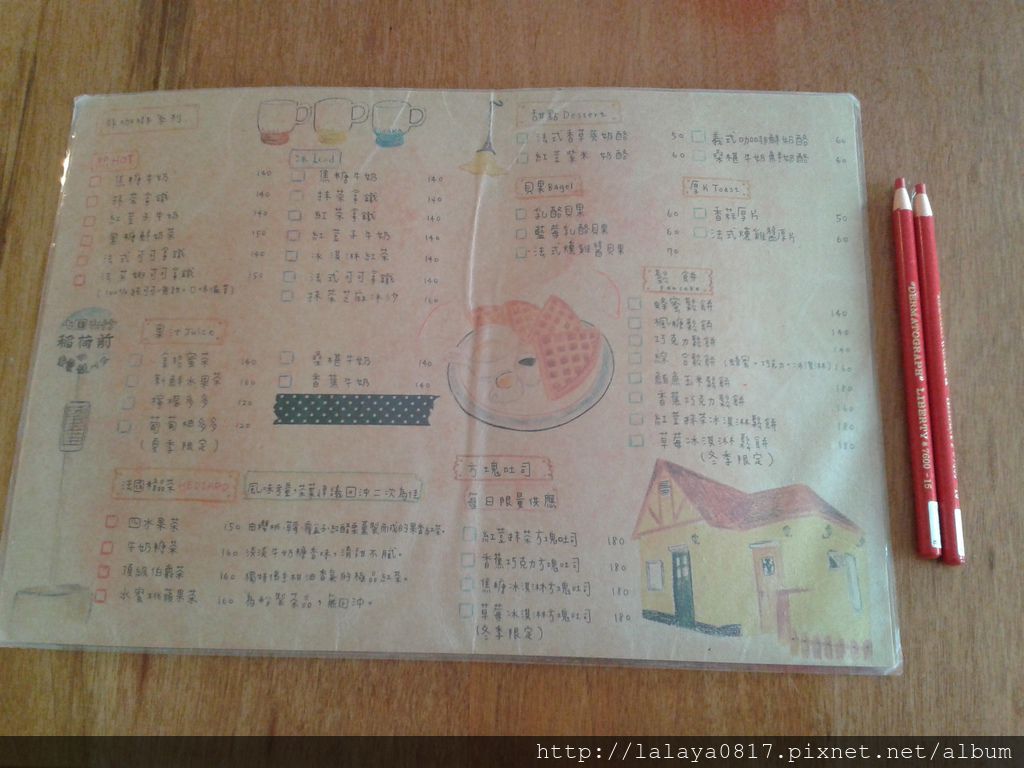 咖啡系列
熱 HOT
焦糖牛奶 140
抹茶拿鐵 140
紅豆子牛奶 140
黑糖鮮奶茶 150
法式可可拿鐵 140
法芙娜可可拿鐵 150
冰 Iced
焦糖牛奶 140
抹茶拿鐵 140
紅茶拿鐵 140
紅豆子牛奶 140
冰淇淋紅茶 140
法式可可拿鐵 140
抹茶芝麻冰沙 160
稻荷前
果汁 Juice
金桔蜜茶 140
新鮮水果茶 160
檸檬多多 120
葡萄柚多多 120
(夏季限定)
桑椹牛奶 140
香蕉牛奶 140
法國精品茶
風味手疊,茶葉建議回沖二次為佳
四水果茶 150
牛奶糖茶 160 淡淡牛奶糖香味,滑甜不膩。
頂級伯爵茶 160
水蜜桃蘋果茶 160 為粉製茶品,無回沖。
甜點 Dessert
法式香草莢奶酪 50
紅豆紫米奶酪 60
義式咖啡鮮奶酪 60
桑椹牛奶鮮奶酪 60
貝果 Bagel
乳酪貝果 60
藍莓乳酪貝果 60
法式燻雞醬貝果 70
厚片 Toast
香蒜厚片 50
法式燻雞醬厚片 60
鬆餅
Pancake
蜂蜜鬆餅 140
楓糖鬆餅 140
巧克力鬆餅 140
綜合鬆餅 160
鮪魚玉米鬆餅 180
香蕉巧克力鬆餅 160
紅豆抹茶冰淇淋鬆餅 180
草莓冰淇淋鬆餅 180
(冬季限定)
方塊吐司
每日限量供應
紅豆抹茶方塊吐司 180
香蕉巧克力方塊吐司 180
焦糖冰淇淋方塊吐司 180
草莓冰淇淋方塊吐司 180
(冬季限定)
"DERMATOGRAPH" LIBERTY 7600-15
http://lalaya0817.pixnet.net/album